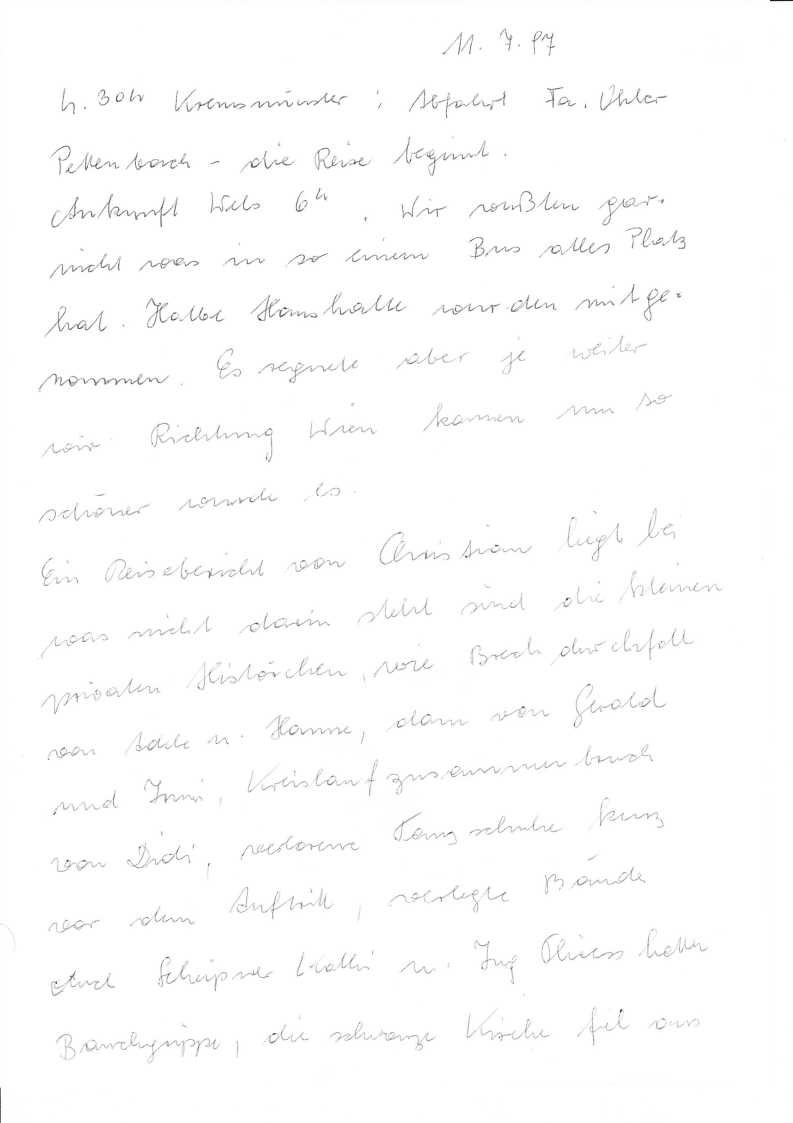 11. 7. 97
4.30h Kremsmünster : Abfahrt Fa. Uhler
Pettenbach - die Reise beginnt.
Ankunft Wels 6h. Wir wußten gar
nicht was in so einem Bus alles Platz
hat. Halbe Haushalte wurden mitge-
nommen. Es regnete aber je weiter
wir Richtung Wien kamen um so
schöner wurde es.
Ein Reisebericht von Christian liegt bei
was nicht darin steht sind die kleinen
privaten Histörchen, wie Brechdurchfall
von Adele u. Hanne, dann von Gerald
und Inni, Kreislaufzusammenbruch
von Didi, verlorene Tanzschuhe kurz
vor dem Auftritt, verlegte Bände
Auch Kathi u. Ing hatten
Bauchgrippe, die schwarze Kirche fiel aus